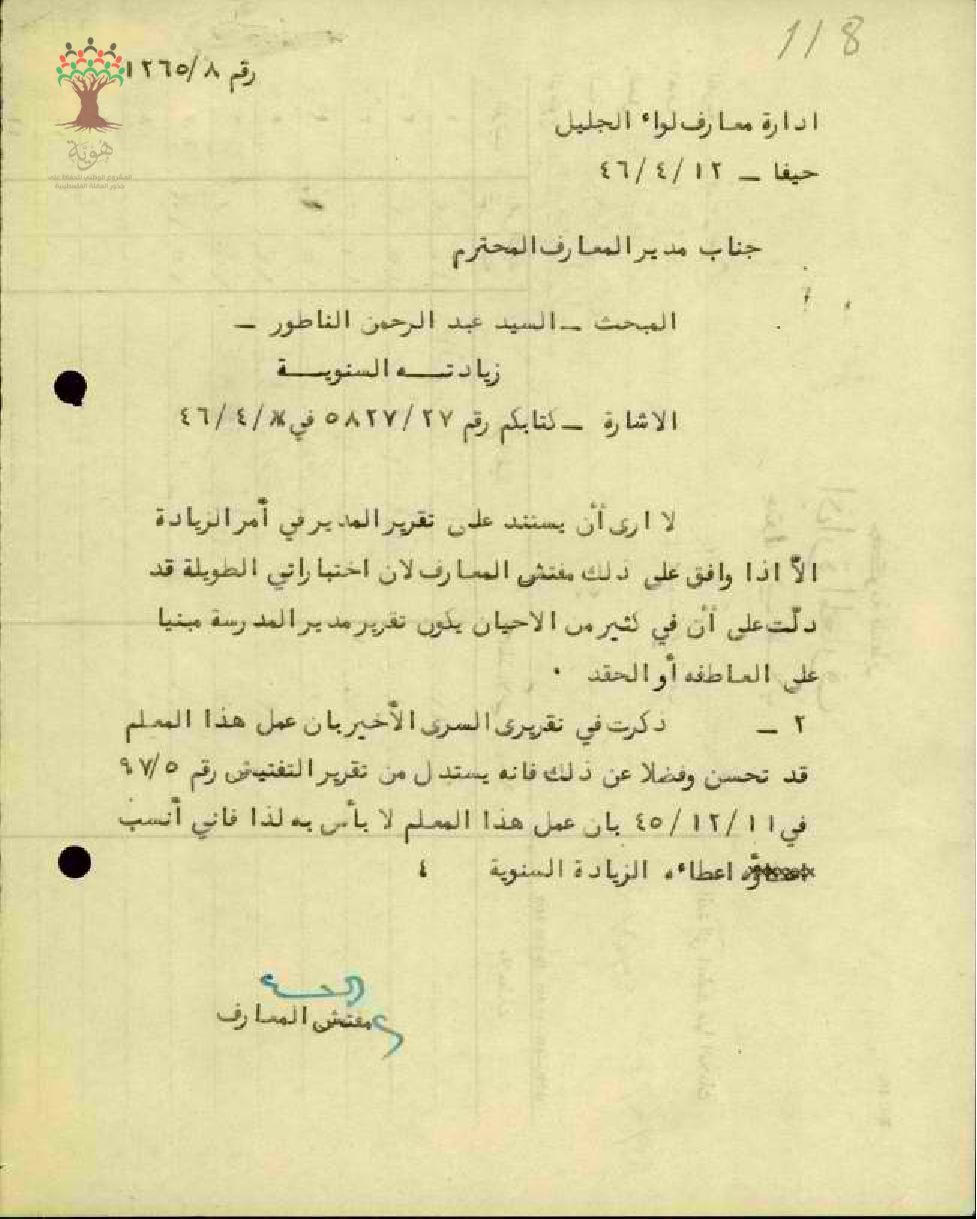 118
رقم ١٢٦٥/٨
هوية
المشروع الوطني للحفاظ على
جذور العائلة الفلسطينية
ادارة معارف لواء الجليل
حيفا ــ ٤٦/٤/١٢
جناب مدير المعارف المحترم
المبحث ــ السيد عبد الرحمن الناطور ــ
زيادتــــه السنويــــة
الاشارة ــ كتابكم رقم ٥٨٢٧/٢٧ في ٤٦/٤/
لا ارى أن يستند على تقرير المدير في أمر الزيادة
الاّ اذا وافق على ذلك مفتش المعارف لان اختباراتي الطويلة قد
دلّت على أن في كثير من الاحيان يكون تقرير مدير المدرسة مبنيا
على العاطفه أو الحقد ٠
٢ ــ ذكرت في تقريرى السرى الأخير بان عمل هذا المعلم
قد تحسن وفضلا عن ذلك فانه يستدل من تقرير التفتيش رقم ٩٧/٥
في ٤٥/١٢/١١ بان عمل هذا المعلم لا بأس به لذا فاني أنسب
اعطاءه الزيادة السنوية ٤
مفتش المعارف